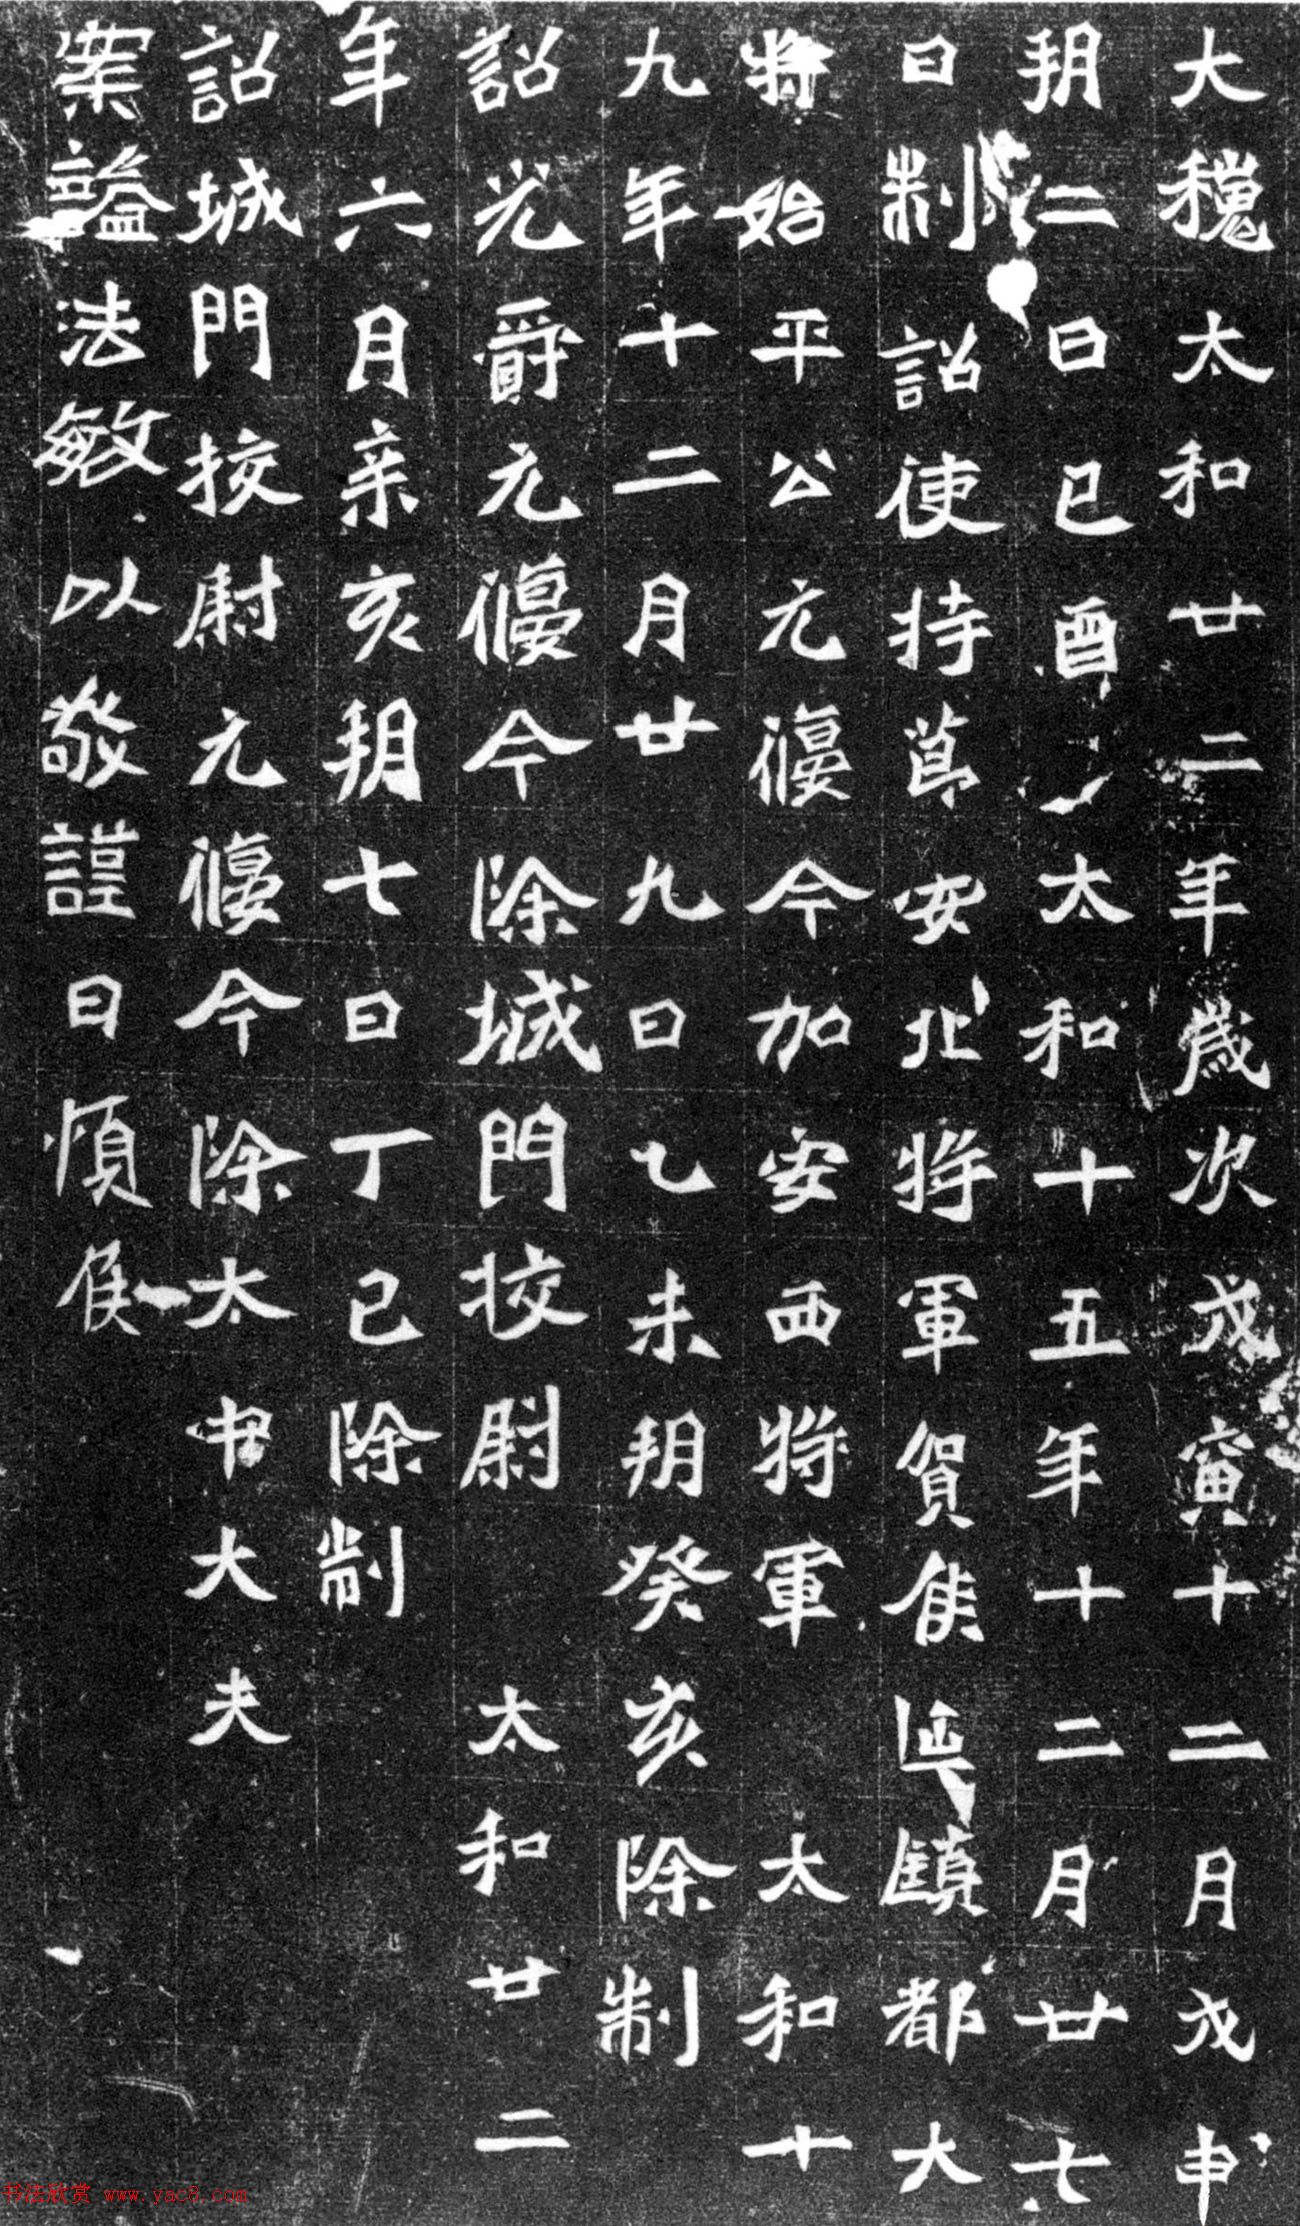 大魏太和廿二年歲次戊寅十二月戊申
朔二日己酉 太和十五年十二月廿七
日制詔使持節安北將軍賀侯延鎮都大
將始平公元偃今加安西將軍 太和十
九年十二月廿九日乙未朔癸亥除制
詔光爵元偃今除城門挍尉 太和廿二
年六月辛亥朔七日丁巳除制
詔城門挍尉元偃今除太中大夫
案謚法敏以敬謹曰順侯
书法欣赏 www.yac8.com